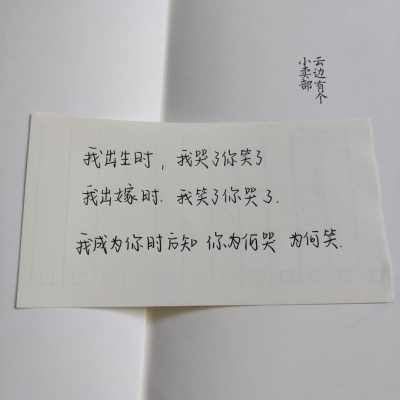 云边有个
小卖部
我出生时，我哭了你笑了
我出嫁时.我笑了你哭了.
我成为你时后知 你为何哭 为何笑.